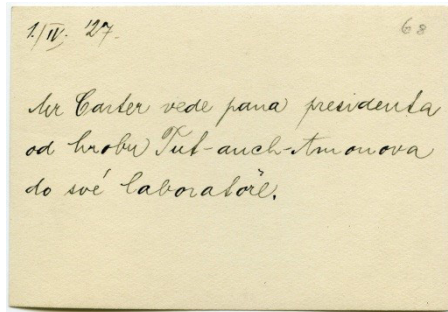 1./IV. '27. 68
Mr Carter vede pana presidenta
od hrobu Tut-anch-Amonova
do své laboratoře.